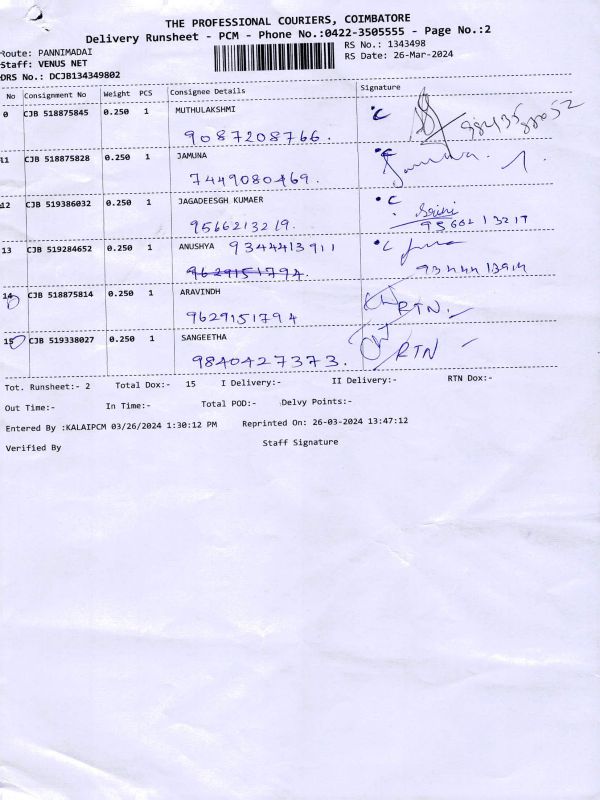 THE PROFESSIONAL COURIERS, COIMBATORE
Delivery Runsheet - PCM - Phone No.:0422-3505555 - Page No.:2
Route: PANNIMADAI
RS No.: 1343498
Staff: VENUS NET
RS Date: 26-Mar-2024
DRS No.: DCJB134349802
No Consignment No Weight PCS Consignee Details Signature
0 CJB 518875845 0.250 1 MUTHULAKSHMI
9087208766.
11 CJB 518875828 0.250 1 JAMUNA
7449080469.
12 CJB 519386032 0.250 1 JAGADEESGH KUMAER
9566213219. 9566213219
13 CJB 519284652 0.250 1 ANUSHYA 9344413911
9629151794.
14 CJB 518875814 0.250 1 ARAVINDH
9629151794 RTN
15 CJB 519338027 0.250 1 SANGEETHA
9840427373. RTN
Tot. Runsheet:- 2 Total Dox:- 15 I Delivery:- II Delivery:- RTN Dox:-
Out Time:- In Time:- Total POD:- Delvy Points:-
Entered By :KALAIPCM 03/26/2024 1:30:12 PM Reprinted On: 26-03-2024 13:47:12
Verified By Staff Signature